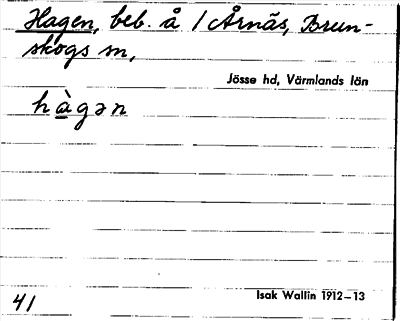 Hagen, beb. å /Årnäs, Brun-
skogs sn,
Jösse hd, Värmlands län
hàgən
41
Isak Wallin 1912–13